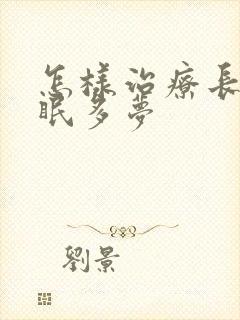 怎樣治療長
眠多夢
劉景